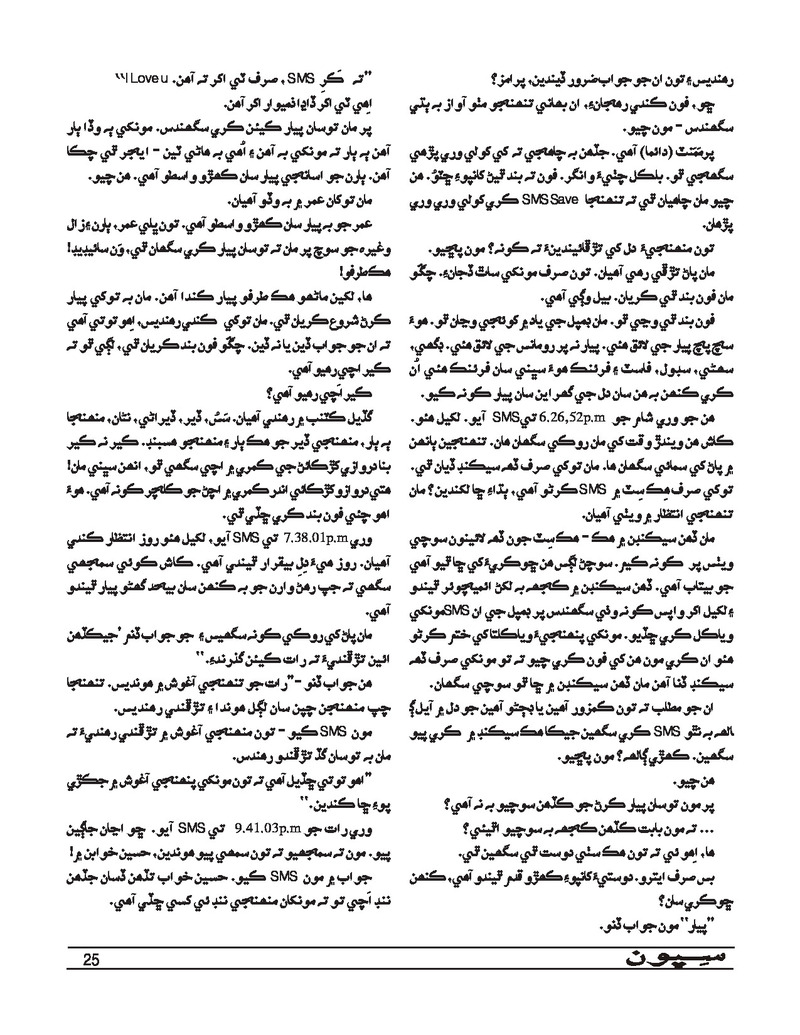 رهنديس ۽ تون ان جو جواب ضرور ڏيندين، پرامز؟
ڇو، فون ڪندي رهجان۽، ان بهاني تنهنجو مٺو آواز به ٻڌي
سگهندس - مون چيو.
پرمننٽ (دائما) آهي. جڏهن به چاهجي ته کي کولي وري پڙهي
سگهجي ٿو. بلڪل چٺيءَ وانگر. فون ته بند ٿيڻ کانپوءِ ڇٽو. هن
چيو مان چاهيان ٿي ته تنهنجا SMS Save ڪري کولي وري وري
پڙهان.
تون منهنجيءَ دل کي تڙڦائيندينءَ ته ڪونه؟ مون پڇيو.
مان پاڻ تڙڦي رهي آهيان. تون صرف مونکي ساٿ ڏجانءِ. چڱو
مان فون بند ٿي ڪريان. بيل وڳي آهي.
فون بند ٿي وڃي ٿو. مان ڊمپل جي ياد ۾ کوئجي وڃان ٿو. هوءَ
سچ پچ پيار جي لائق هئي. پيار نه پر رومانس جي لائق هئي. ڊگهي،
سهڻي، سڊول، فاسٽ ۽ فرئنڪ هوءَ سڀني سان فرئنڪ هئي اُن
ڪري ڪنهن به هن سان دل جي گهراين سان پيار ڪونه ڪيو.
هن جو وري شام جو 6.26,52p.m تي SMS آيو. لکيل هئو.
ڪاش هن ويندڙ وقت کي مان روڪي سگهان ها. تنهنجين ٻانهن
۾ پاڻ کي سمائي سگهان ها. مان توکي صرف ڏهه سيڪنڊ ڏيان ٿي.
توکي صرف هڪ سِٽ ۾ SMS ڪرڻو آهي، ٻڌاءِ ڇا لکندين؟ مان
تنهنجي انتظار ۾ ويٺي آهيان.
مان ڏهن سيڪنڊن ۾ هڪ - هڪ سِٽ جون ڏهه لائينون سوچي
ويٺس پر ڪونه ڪيم. سوچڻ لڳس هن ڇوڪريءَ کي ڇا ٿيو آهي
جو بيتاب آهي. ڏهن سيڪنڊن ۾ ڪجهه به لکڻ ائميچوئر ٿيندو
۽ لکيل اکر واپس ڪونه وٺي سگهندس پر ڊمپل جي ان SMS مونکي
وياڪل ڪري ڇڏيو. مونکي پنهنجيءَ وياڪلتا کي ختم ڪرڻو
هئو ان ڪري مون هن کي فون ڪري چيو ته تو مونکي صرف ڏهه
سيڪنڊ ڏنا آهن مان ڏهن سيڪنڊن ۾ ڇا ٿو سوچي سگهان.
ان جو مطلب ته تون ڪمزور آهين يا ڊڄڻو آهين جو دل ۾ آيل ڳ
الهه به نٿو SMS ڪري سگهين جيڪا هڪ سيڪنڊ ۾ ڪري پيو
سگهين. ڪهڙي ڳالهه؟ مون پڇيو.
هن چيو.
پر مون توسان پيار ڪرڻ جو ڪڏهن سوچيو به نه آهي؟
... ته مون بابت ڪڏهن ڪجهه به سوچيو اٿيئي؟
ها، اِهو ئي ته تون هڪ سٺي دوست ٿي سگهين ٿي.
بس صرف ايترو. دوستيءَ کانپوءِ ڪهڙو قدم ٿيندو آهي، ڪنهن
ڇوڪريءَ سان؟
”پيار“ مون جواب ڏنو.
”ته ڪَرِ SMS، صرف ٽي اکر ته آهن. I Love u“
اِهي ٽي اکر ڏاڍا ذميوار اکر آهن.
پر مان توسان پيار ڪيئن ڪري سگهندس. مونکي ٻه وڏا ٻار
آهن ٻه ٻار ته مونکي به آهن ۽ اُهي به هاڻي ٽين - ايجر ٿي چڪا
آهن. ٻارن جو اسانجي پيار سان ڪهڙو واسطو آهي. هن چيو.
مان توکان عمر ۾ به وڏو آهيان.
عمر جو به پيار سان ڪهڙو واسطو آهي. تون ڀلي عمر، ٻارن ۽ زال
وغيره جو سوچ پر مان ته توسان پيار ڪري سگهان ٿي، وَن سائيڊيڊ!
هڪطرفو!
ها، لکين ماڻهو هڪ طرفو پيار ڪندا آهن. مان به توکي پيار
ڪرڻ شروع ڪريان ٿي. مان توکي ڪندي رهنديس، اِهو توتي آهي
ته ان جو جواب ڏين يا نه ڏين. چڱو فون بند ڪريان ٿي، لڳي ٿو ته
ڪير اچي رهيو آهي.
ڪير اَچي رهيو آهي؟
گڏيل ڪٽنب ۾ رهندي آهيان. سَسُ، ڏير، ڏيراڻي، نڻان، منهنجا
ٻه ٻار، منهنجي ڏير جو هڪ ٻار ۽ منهنجو هسبنڊ. ڪير نه ڪير
بنا دروازي کڙڪائڻ جي ڪمري ۾ اچي سگهي ٿو، انهن سڀني مان!
هتي دروازو کڙڪائي اندر ڪمري ۾ اچڻ جو ڪلچر ڪونه آهي. هوءَ
اهو چئي فون بند ڪري ڇڏي ٿي.
وري 7.38.01p.m تي SMS آيو، لکيل هئو روز انتظار ڪندي
آهيان. روز هيءَ دِل بيقرار ٿيندي آهي. ڪاش ڪوئي سمجهي
سگهي ته چپ رهڻ وارن جو به ڪنهن سان بيحد گهڻو پيار ٿيندو
آهي.
مان پاڻ کي روڪي ڪونه سگهيس ۽ جو جواب ڏنم ’جيڪڏهن
ائين تڙڦنديءَ ته رات ڪيئن گذرندءِ.“
هن جواب ڏنو -”رات جو تنهنجي آغوش ۾ هونديس. تنهنجا
چپ منهنجن چپن سان لڳل هوندا ۽ تڙڦندي رهنديس.
مون SMS ڪيو - تون منهنجي آغوش ۾ تڙڦندي رهنديءَ ته
مان به توسان گڏ تڙڦندو رهندس.
”اهو توتي ڇڏيل آهي ته تون مونکي پنهنجي آغوش ۾ جڪڙي
پوءِ ڇا ڪندين.“
وري رات جو 9.41.03p.m تي SMS آيو. ڇو اڃان جاڳين
پيو. مون ته سمجهيو ته تون سمهي پيو هوندين، حسين خوابن ۾!
جواب ۾ مون SMS ڪيو. حسين خواب تڏهن ڏسان جڏهن
ننڊ اَچي تو ته مونکان منهنجي ننڊ ئي کسي ڇڏي آهي.
سِپون
25